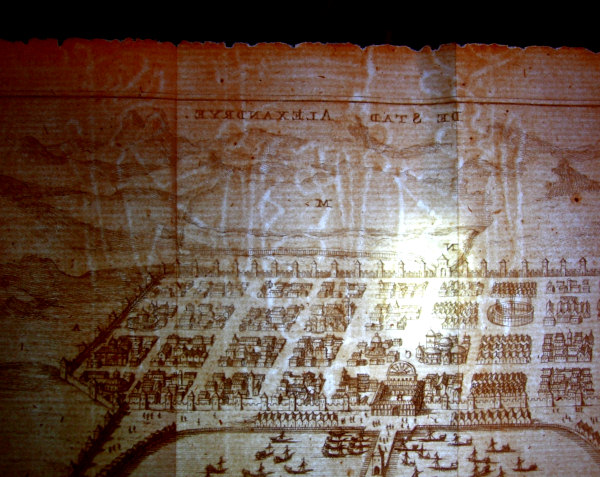 DE STAD ALEXANDRYE.
M.
N
A